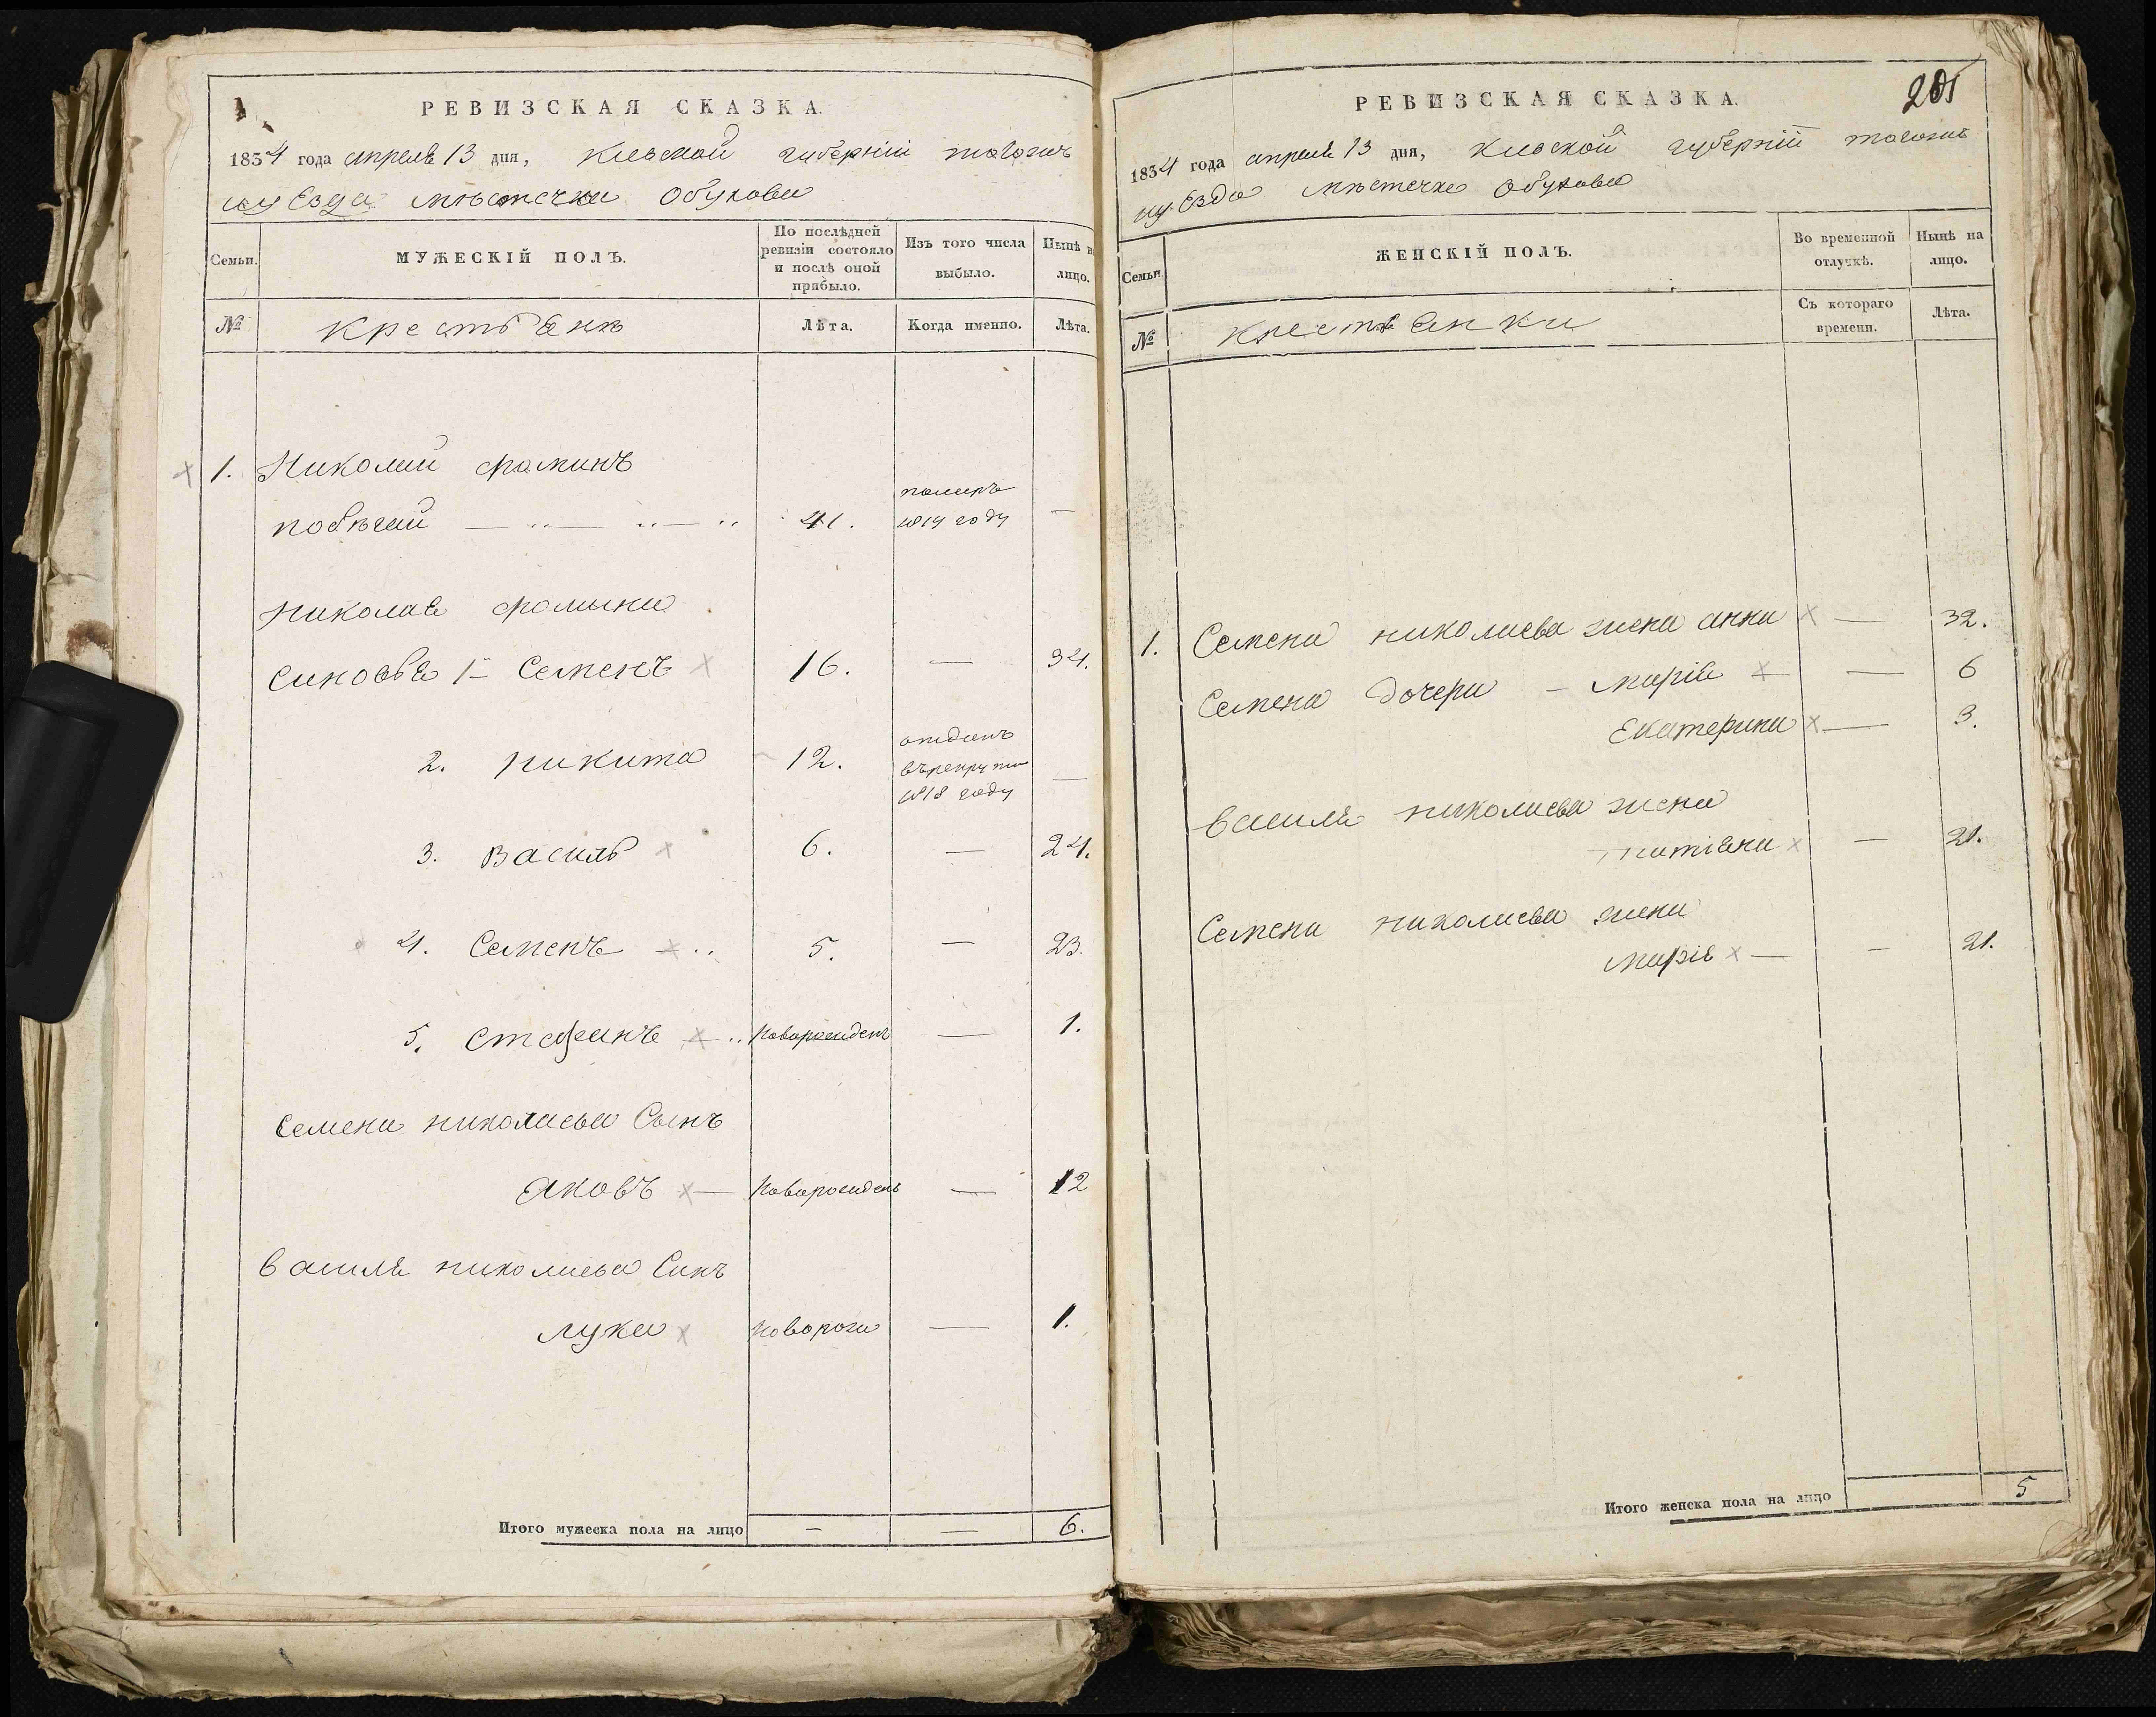 РЕВИЗСКАЯ СКАЗКА.
1834 года апреля 13 дня, Киевской губернiи
уезда мѣстечка Обухова
Семьи.
МУЖЕСКІЙ ПОЛЪ.
По послѣдней ревизіи состояло и послѣ оной прибыло.
Изъ того числа выбыло.
Нынѣ на лицо.
№
крестьянъ
Лѣта.
Когда именно.
Лѣта.
1. Николай фоминъ
побѣгай 41.
померъ
1819 году —
Николая фомина
Синовья 1- Семенъ 16. — 34.
2. никита 12.
отданъ
въ рекруты
1818 году —
3. Василь 6. — 24.
4. Семенъ 5. — 23.
5. Стефанъ Новорожденъ — 1.
Семена николаева Сынъ
Яковъ — Новорожденъ — 12
василя николаева Синъ
лука Новорож — 1.
Итого мужеска пола на лицо — — 6.
205
РЕВИЗСКАЯ СКАЗКА.
1834 года апреля 13 дня, Киевской губернiи
уезда мѣстечка Обухова
Семьи.
ЖЕНСКІЙ ПОЛЪ.
Во временной отлучкѣ.
Нынѣ на лицо.
№
крестьянки
Съ котораго времени.
Лѣта.
1. Семена николаева жена анна — 32.
Семена дочери - марія — 6
Екатерина — 3.
василя николаева жена
татіяна — 21.
Семена николаева жена
марія — — 21.
Итого женска пола на лицо 5